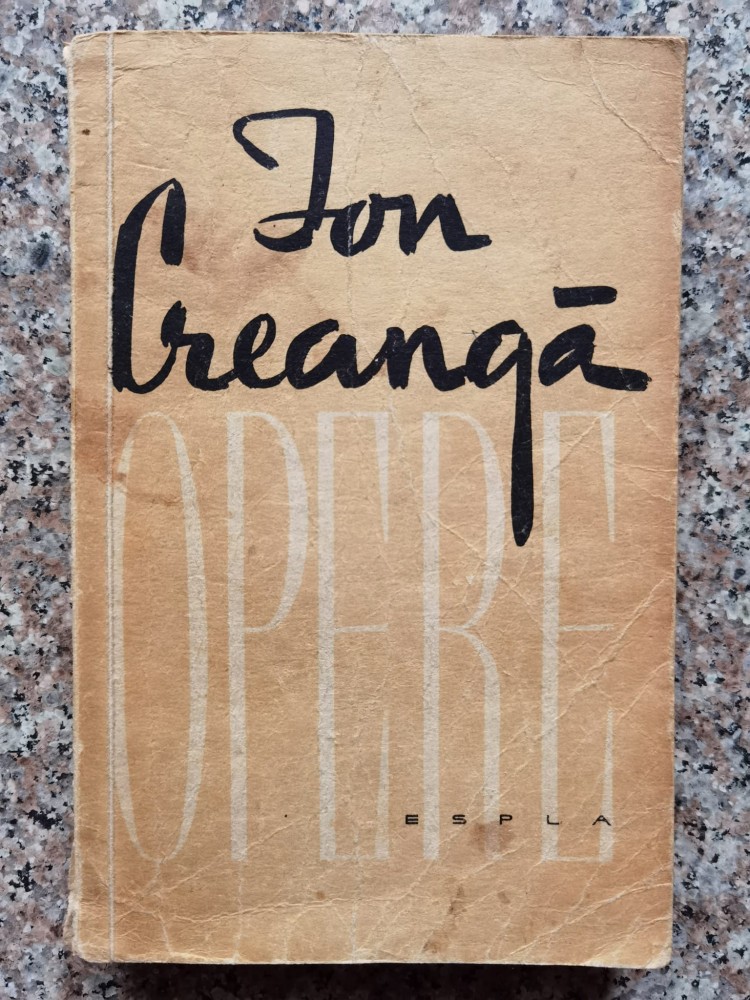 Ion
Creangă
OPERE
ESPLA